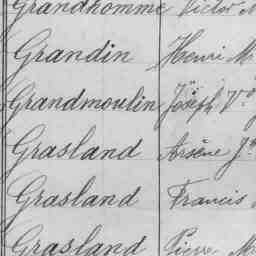 Grandhomme Victor M
Grandin Henri M
Grandmoulin Joseph V.
Grasland Arsène J.
Grasland Francis
Grasland Pierre M